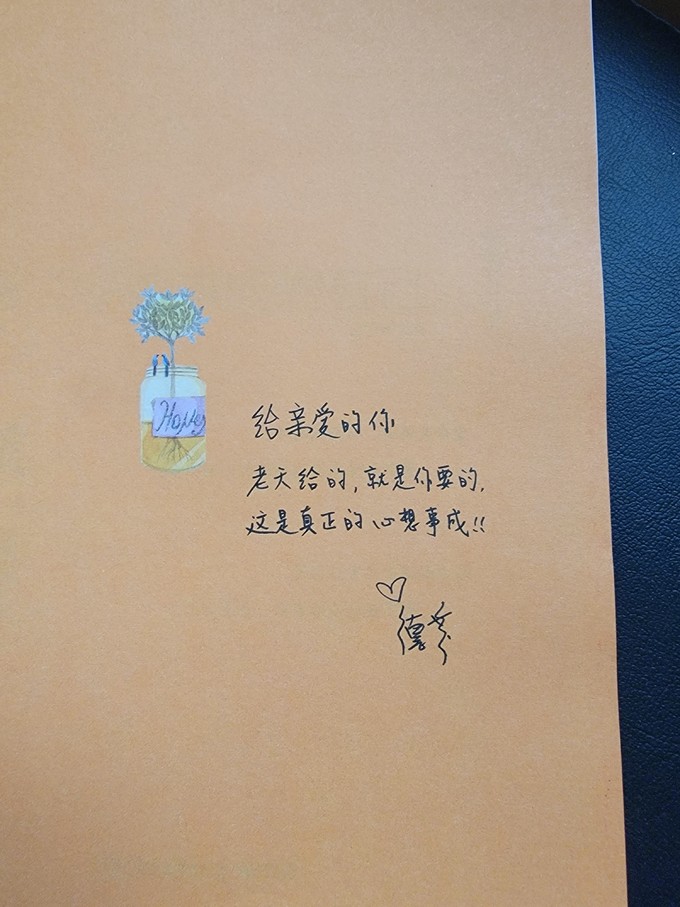 Honey
给亲爱的你
老天给的，就是你要的，
这是真正的心想事成!!
德芬